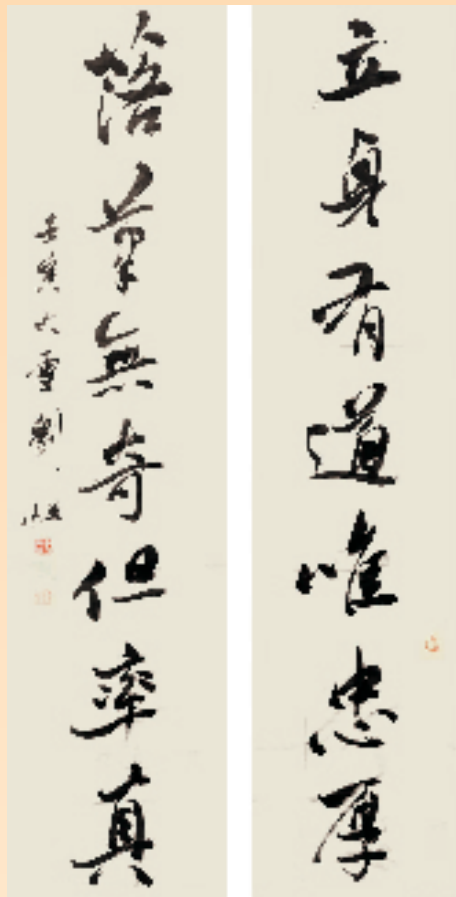 立身有道唯忠厚
落筆無奇但率真
壬寅大雪劉